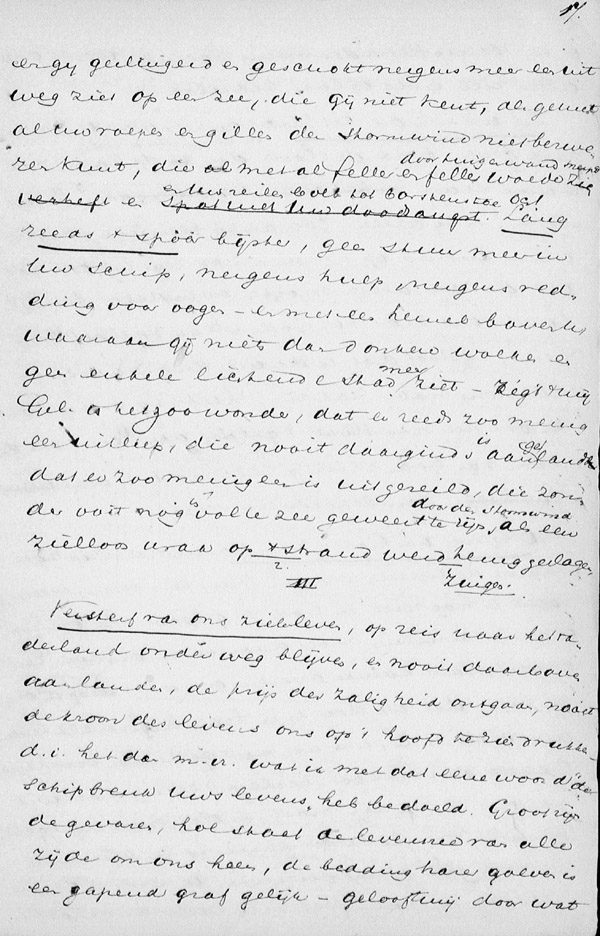 17.
en gij geslingerd en geschokt nergens meer een uit
weg ziet op een zee, die gij niet kent, als gij met
al uw roepen en gillen den stormwind niet bezwe
door tuig en want
zeren kunt, die al met al feller en feller woede
en uw zeilen bolt tot barstens toe
verheft en spot met uw doodangst. Lang
reeds 't spoor bijster, geen stuur meer in
uw schip, nergens hulp, nergens red-
ding voor oogen – en met een hemel boven u
waaraan gij niets dan donkere wolken en
geen enkele lichtende ster meer ziet – zegt mij
Gel. is het zoo wonder, dat er reeds zoo menig
een uitliep, die nooit daarginds is aangeland
dat er zoo menigeen is uitgezeild, die zon-
door den stormwind
der ooit nog in volle zee geweest te zijn, als een
zielloos wrak op 't strand werd heengeslagen
2. Zingen.
III
Versterf van ons zieleleven, op reis naar het va-
derland onderweg blijven, en nooit daarboven
aanlanden, de prijs der zaligheid ontgaan, nooit
de kroon des levens ons op 't hoofd te zien drukken –
d.i. het dan m.v. wat ik met dat eene woord „de
schipbreuk uws levens" heb bedoeld. Groot zijn
de gevaren, hol staat de levenszee van alle
zijde om ons heen, de bedding harer golven is
een gapend graf gelijk – geloof mij door wat